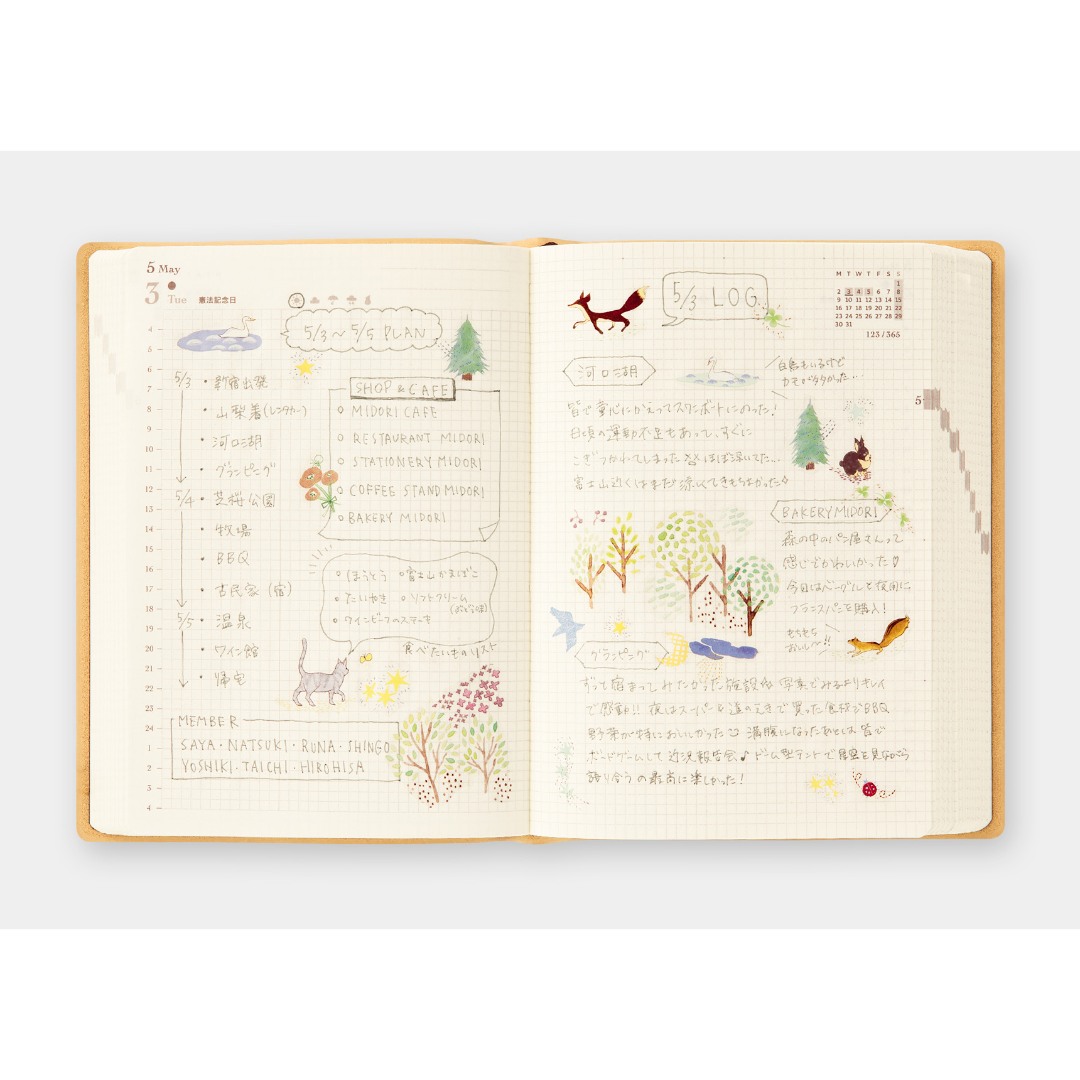 5 May
3 Tue 憲法記念日
5/3〜5/5 PLAN
4
5
6
7
8
9
10
11
12
13
14
15
16
17
18
19
20
21
22
23
24
1
2
3
4
5/3 ・新宿出発
・山梨着(レンタカー)
・河口湖
・グランピング
5/4 ・芝桜公園
・牧場
・BBQ
・古民家(宿)
5/5 ・温泉
・ワイン館
・帰宅
SHOP & CAFE
MIDORI CAFE
RESTAURANT MIDORI
STATIONERY MIDORI
COFFEE STAND MIDORI
BAKERY MIDORI
ほうとう 富士山かまぼこ
たいやき ソフトクリーム
ワインビーフのステーキ
食べたいものリスト
MEMBER
SAYA・NATSUKI・RUNA・SHINGO
YOSHIKI・TAICHI・HIROHISA
5/3 LOG
M T W T F S S
1
2 3 4 5 6 7 8
9 10 11 12 13 14 15
16 17 18 19 20 21 22
23 24 25 26 27 28 29
30 31
123/365
5
河口湖
白鳥もいるけど
カモが多かった…
皆で童心にかえってスワンボートにのった!
日頃の運動不足もあって、すぐに
こぎつかれてしまった ほぼ浮いてた…
富士山近くはまだ涼しくてきもちよかった
BAKERY MIDORI
森の中のパン屋さんって
感じでかわいかった
今日はベーグルと夜用に
フランスパンを購入!
もちもち
おいし〜!!
グランピング
ずっと宿まってみたかった施設 写真でみるよりキレイ
で感動!! 夜はスーパーと道のえきで買った食材でBBQ
野菜が特においしかった 満腹になったあとは皆で
ボードゲームして近況報告会♪ドーム型テントで星空を見ながら
語り合うの最高に楽しかった!